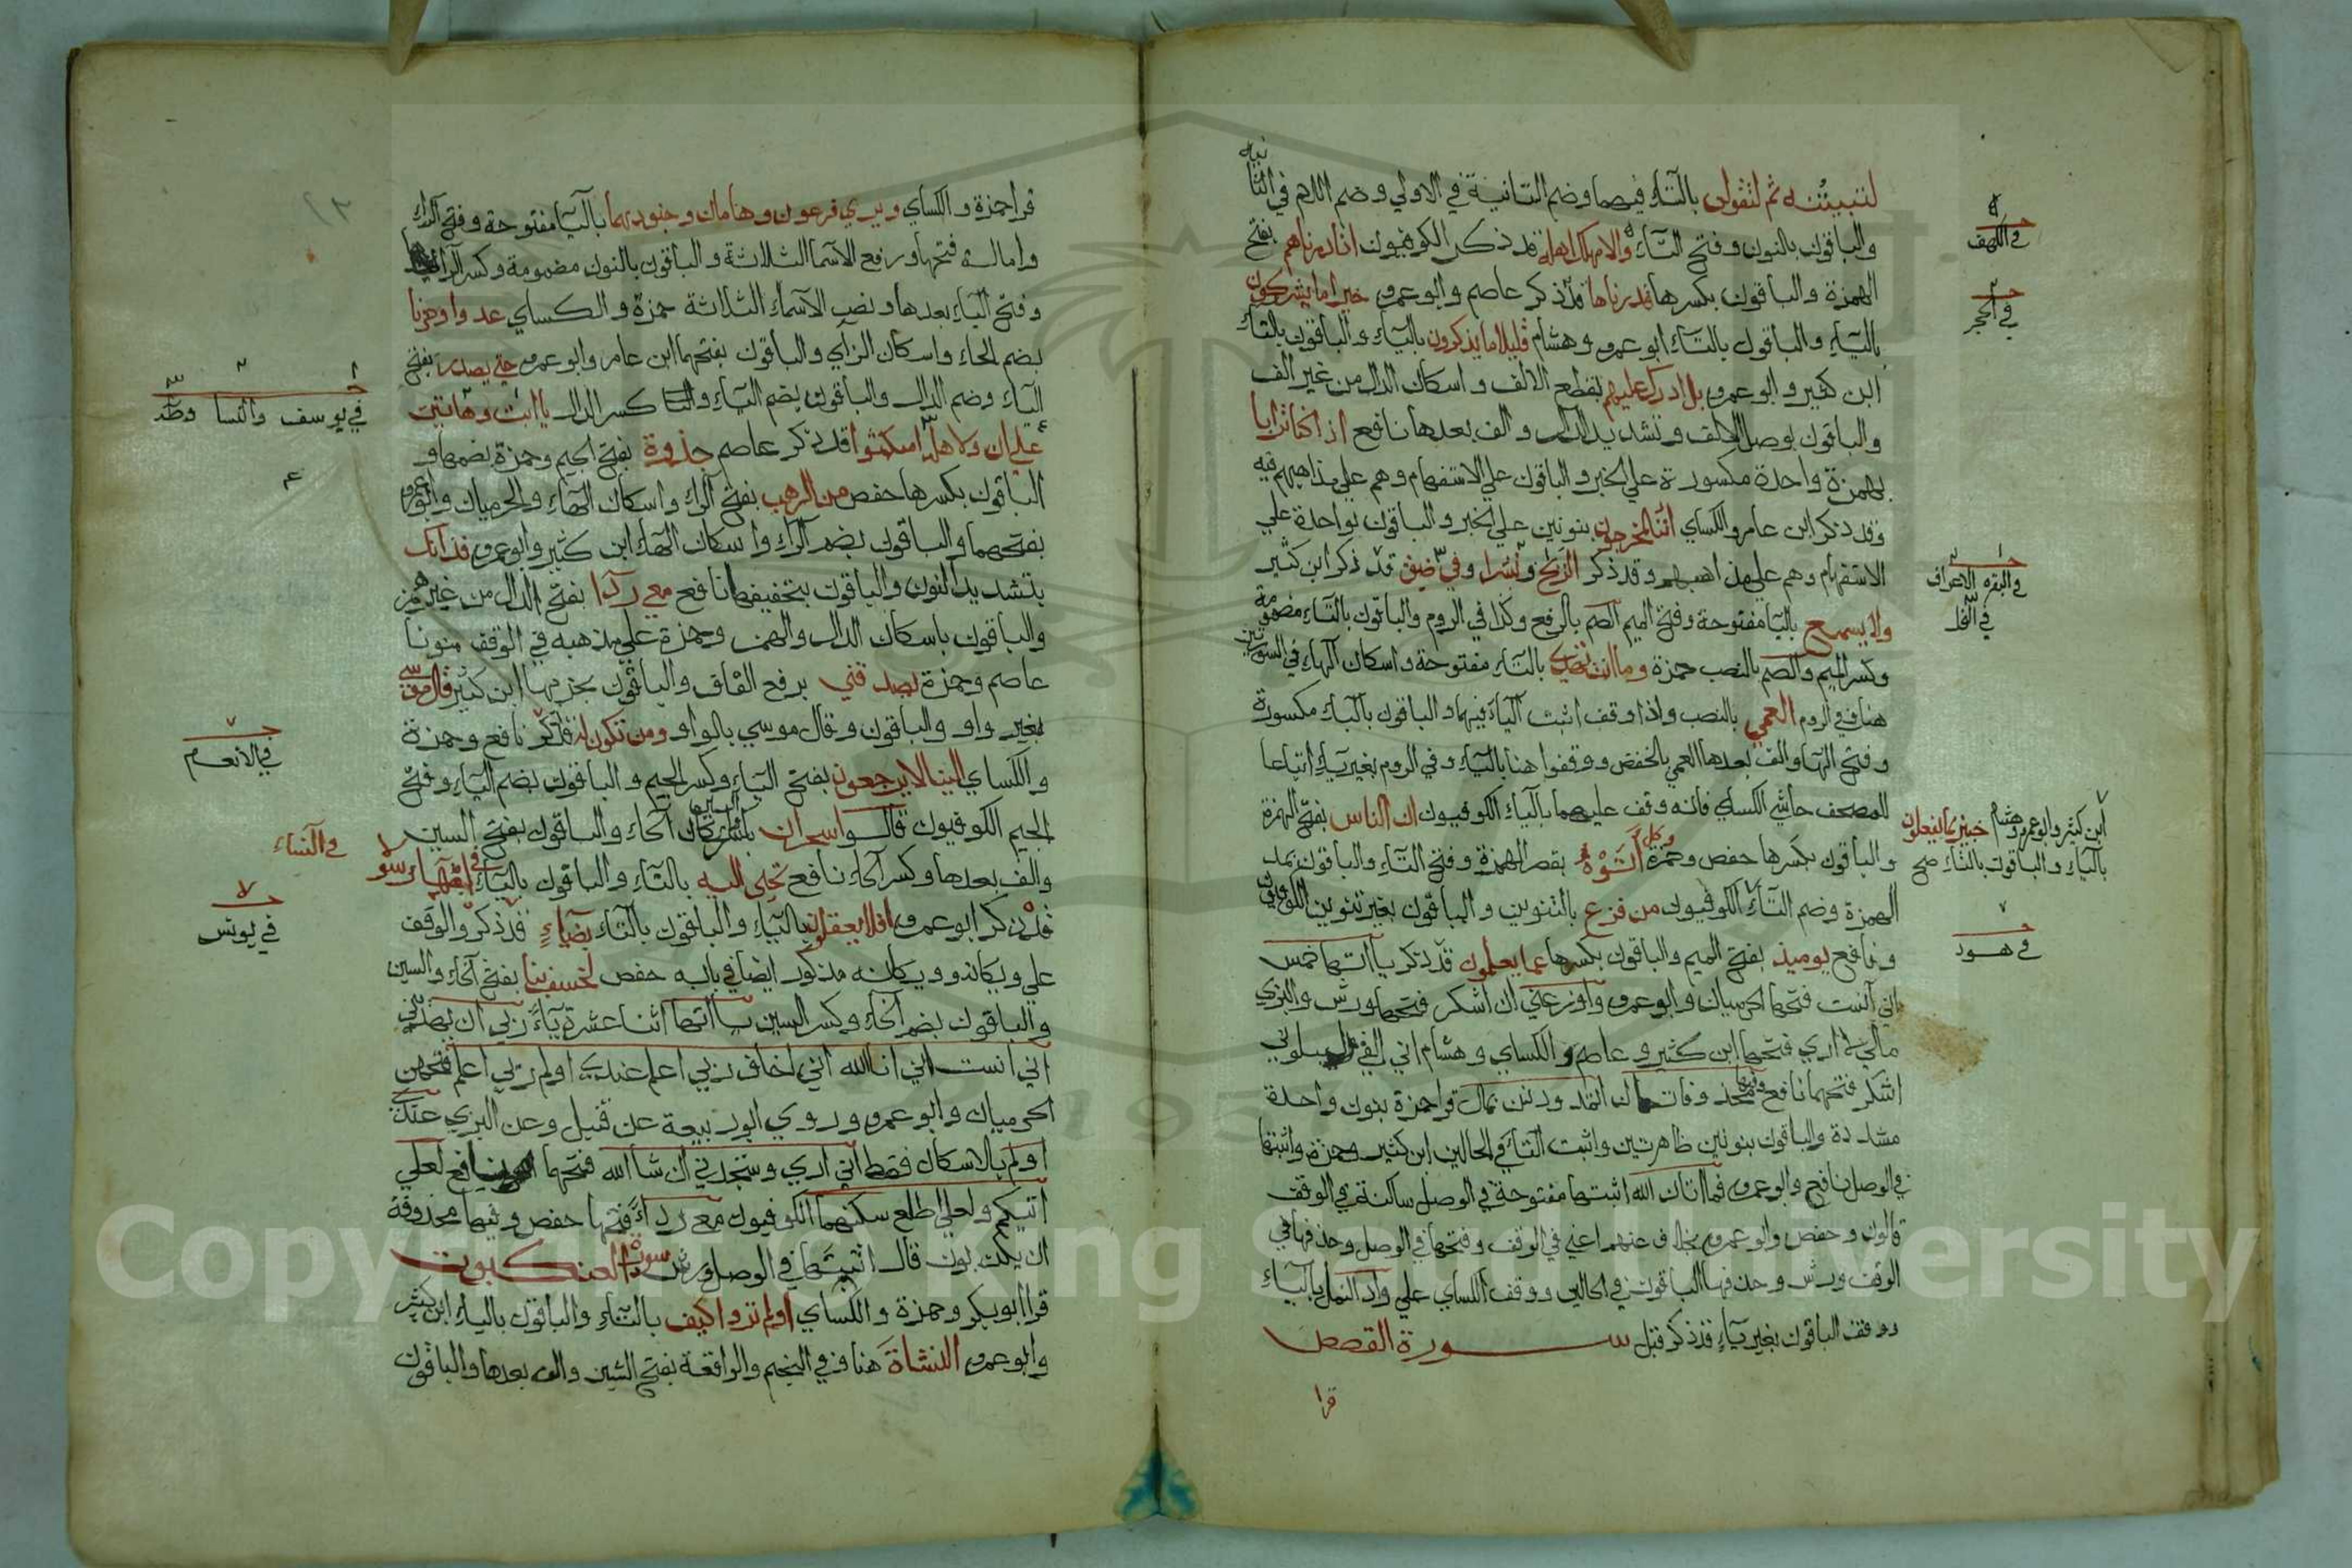 لتبيتنه ثم لتقولن بالتاء فيهما وضم التاء الثانية في الاولي وضم اللام في الثانية
والباقون بالنون وفتح التاء والام مهلك اهله قد ذكر الكوفيون انا دمرناهم بفتح
الهمزة والباقون بكسرها قدرناها قد ذكر عاصم وابو عمرو خير اما يشركون
بالياء والباقون بالتاء ابو عمرو وهشام قليلا ما يذكرون بالياء والباقون بالتاء
ابن كثير وابو عمرو بل ادرك علمهم بقطع الالف واسكان الدال من غير الف
والباقون بوصل الالف وتشديد الدال والف بعدها نافع اذا كنا ترابا
بهمزة واحدة مكسورة علي الخبر والباقون علي الاستفهام وهم علي مذاهبهم فيه
وقد ذكر ابن عامر والكساي اننا لمخرجون بنونين علي الخبر والباقون بواحدة علي
الاستفهام وهم علي مذاهبهم وقد ذكر الريح ونشرا وفي ضيق قد ذكر ابن كثير
ولا يسمع باليا مفتوحة وفتح الميم الصم بالرفع وكذا في الروم والباقون بالتاء مضمومة
وكسر الميم والصم بالنصب حمزة وما انت تهدي بالتاء مفتوحة واسكان الهاء في السورتين
هنا وفي الروم العمي بالنصب واذا وقف اثبت الياء فيهما والباقون بالباء مكسورة
وفتح الها والف بعدها العمي بالخفض ووقفوا هنا بالياء وفي الروم بغير ياء اتباعا
للمصحف حاشي الكساي فانه وقف عليهما بالياء الكوفيون ان الناس بفتح الهمزة
والباقون بكسرها حفص وحمزة وكل اتوه بقصر الهمزة وفتح التاء والباقون بمد
الهمزة وضم التاء الكوفيون من فزع بالتنوين والباقون بغير تنوين الكوفيون
ونافع يوميذ بفتح الميم والباقون بكسرها عما يعملون قد ذكر ياآتها خمس
اني آنست فتحها الحرميان وابو عمرو واوزعني ان اشكر فتحها ورش والبزي
مالي لا اري فتحها ابن كثير وعاصم والكساي وهشام اني القي ليبلوني
اشكر فتحهما نافع وفيها محذوفتان اتمدونن بمال قرا حمزة بنون واحدة
مشددة والباقون بنونين ظاهرتين واثبت الياء في الحالين ابن كثير وحمزة واثبتها
في الوصل نافع وابو عمرو فما اتان الله اثبتها مفتوحة في الوصل ساكنة في الوقف
قالون وحفص وابو عمرو بخلاف عنهم اعني في الوقف وفتحها في الوصل وحذفها في
الوقف ورش وحذفها الباقون في الحالين ووقف الكساي علي واد النمل بالياء
ووقف الباقون بغير ياء قد ذكر قبل ســورة القصص
قرا
في الكهف
في الحجر
في البقره الاعراف
في النحل
ابن كثير وابو عمرو وهشام خبير بما يفعلون
بالياء والباقون بالتاء صح
في هود
قرا حمزة والكساي ويري فرعون وهامان وجنودهما باليا مفتوحة وفتح الراء
وامالة فتحها ورفع الاسما الثلاثة والباقون بالنون مضمومة وكسر الراء
وفتح الياء بعدها ونصب الاسماء الثلاثة حمزة والكساي عدوا وحزنا
بضم الحاء واسكان الزاي والباقون بفتحهما ابن عامر وابو عمرو حتي يصدر بفتح
الياء وضم الدال والباقون بضم الياء وكسر الدال يا ابت وهاتين
علي ان ولاهله امكثوا قد ذكر عاصم جذوة بفتح الجيم وحمزة بضمها و
الباقون بكسرها حفص من الرهب بفتح الراء واسكان الهاء والحرميان وابو عمرو
بفتحهما والباقون بضم الراء واسكان الهاء ابن كثير وابو عمرو فذانك
بتشديد النون والباقون بتخفيفها نافع معي ردا بفتح الدال من غير همز
والباقون باسكان الدال والهمز وحمزة علي مذهبه في الوقف منونا
عاصم وحمزة يصدقني برفع القاف والباقون بجزمها ابن كثير قال موسي
بغير واو والباقون وقال موسي بالواو ومن تكون له قد ذكر نافع وحمزة
والكساي الينا لا يرجعون بفتح الياء وكسر الجيم والباقون بضم الياء وفتح
الجيم الكوفيون قالوا سحران باسكان الحاء والباقون بفتح السين
والف بعدها وكسر الحاء نافع تجبي اليه بالتاء والباقون بالياء في امها رسولا
قد ذكر ابو عمرو افلا يعقلون بالياء والباقون بالتاء بضياء قد ذكر والوقف
علي ويكان وويكانه مذكور ايضا في بابه حفص لخسف بنا بفتح الخاء والسين
والباقون بضم الخاء وكسر السين ياآتها اثنا عشرة ياء ربي ان يهديني
اني انست اني انا الله اني اخاف ربي اعلم عندي اولم ربي اعلم فتحهن
الحرميان وابو عمرو وروي ابو ربيعة عن قنبل وعن البزي عندي
اولم بالاسكان فقط اني اريد وستجدني ان شا الله فتحهما نافع لعلي
اتيكم ولعلي اطلع سكنهما الكوفيون معي ردا فتحها حفص وفيها محذوفة
ان يكذبون قال اثبتها في الوصل ورش سورة العنكبوت
قرا ابو بكر وحمزة والكساي اولم تروا كيف بالتاء والباقون بالياء ابن كثير
وابو عمرو النشاة هنا وفي النجم والواقعة بفتح الشين والف بعدها والباقون
في يوسف والنسا وطه
في الانعام
في النساء
في يونس
Copyright © King Saud University
1957